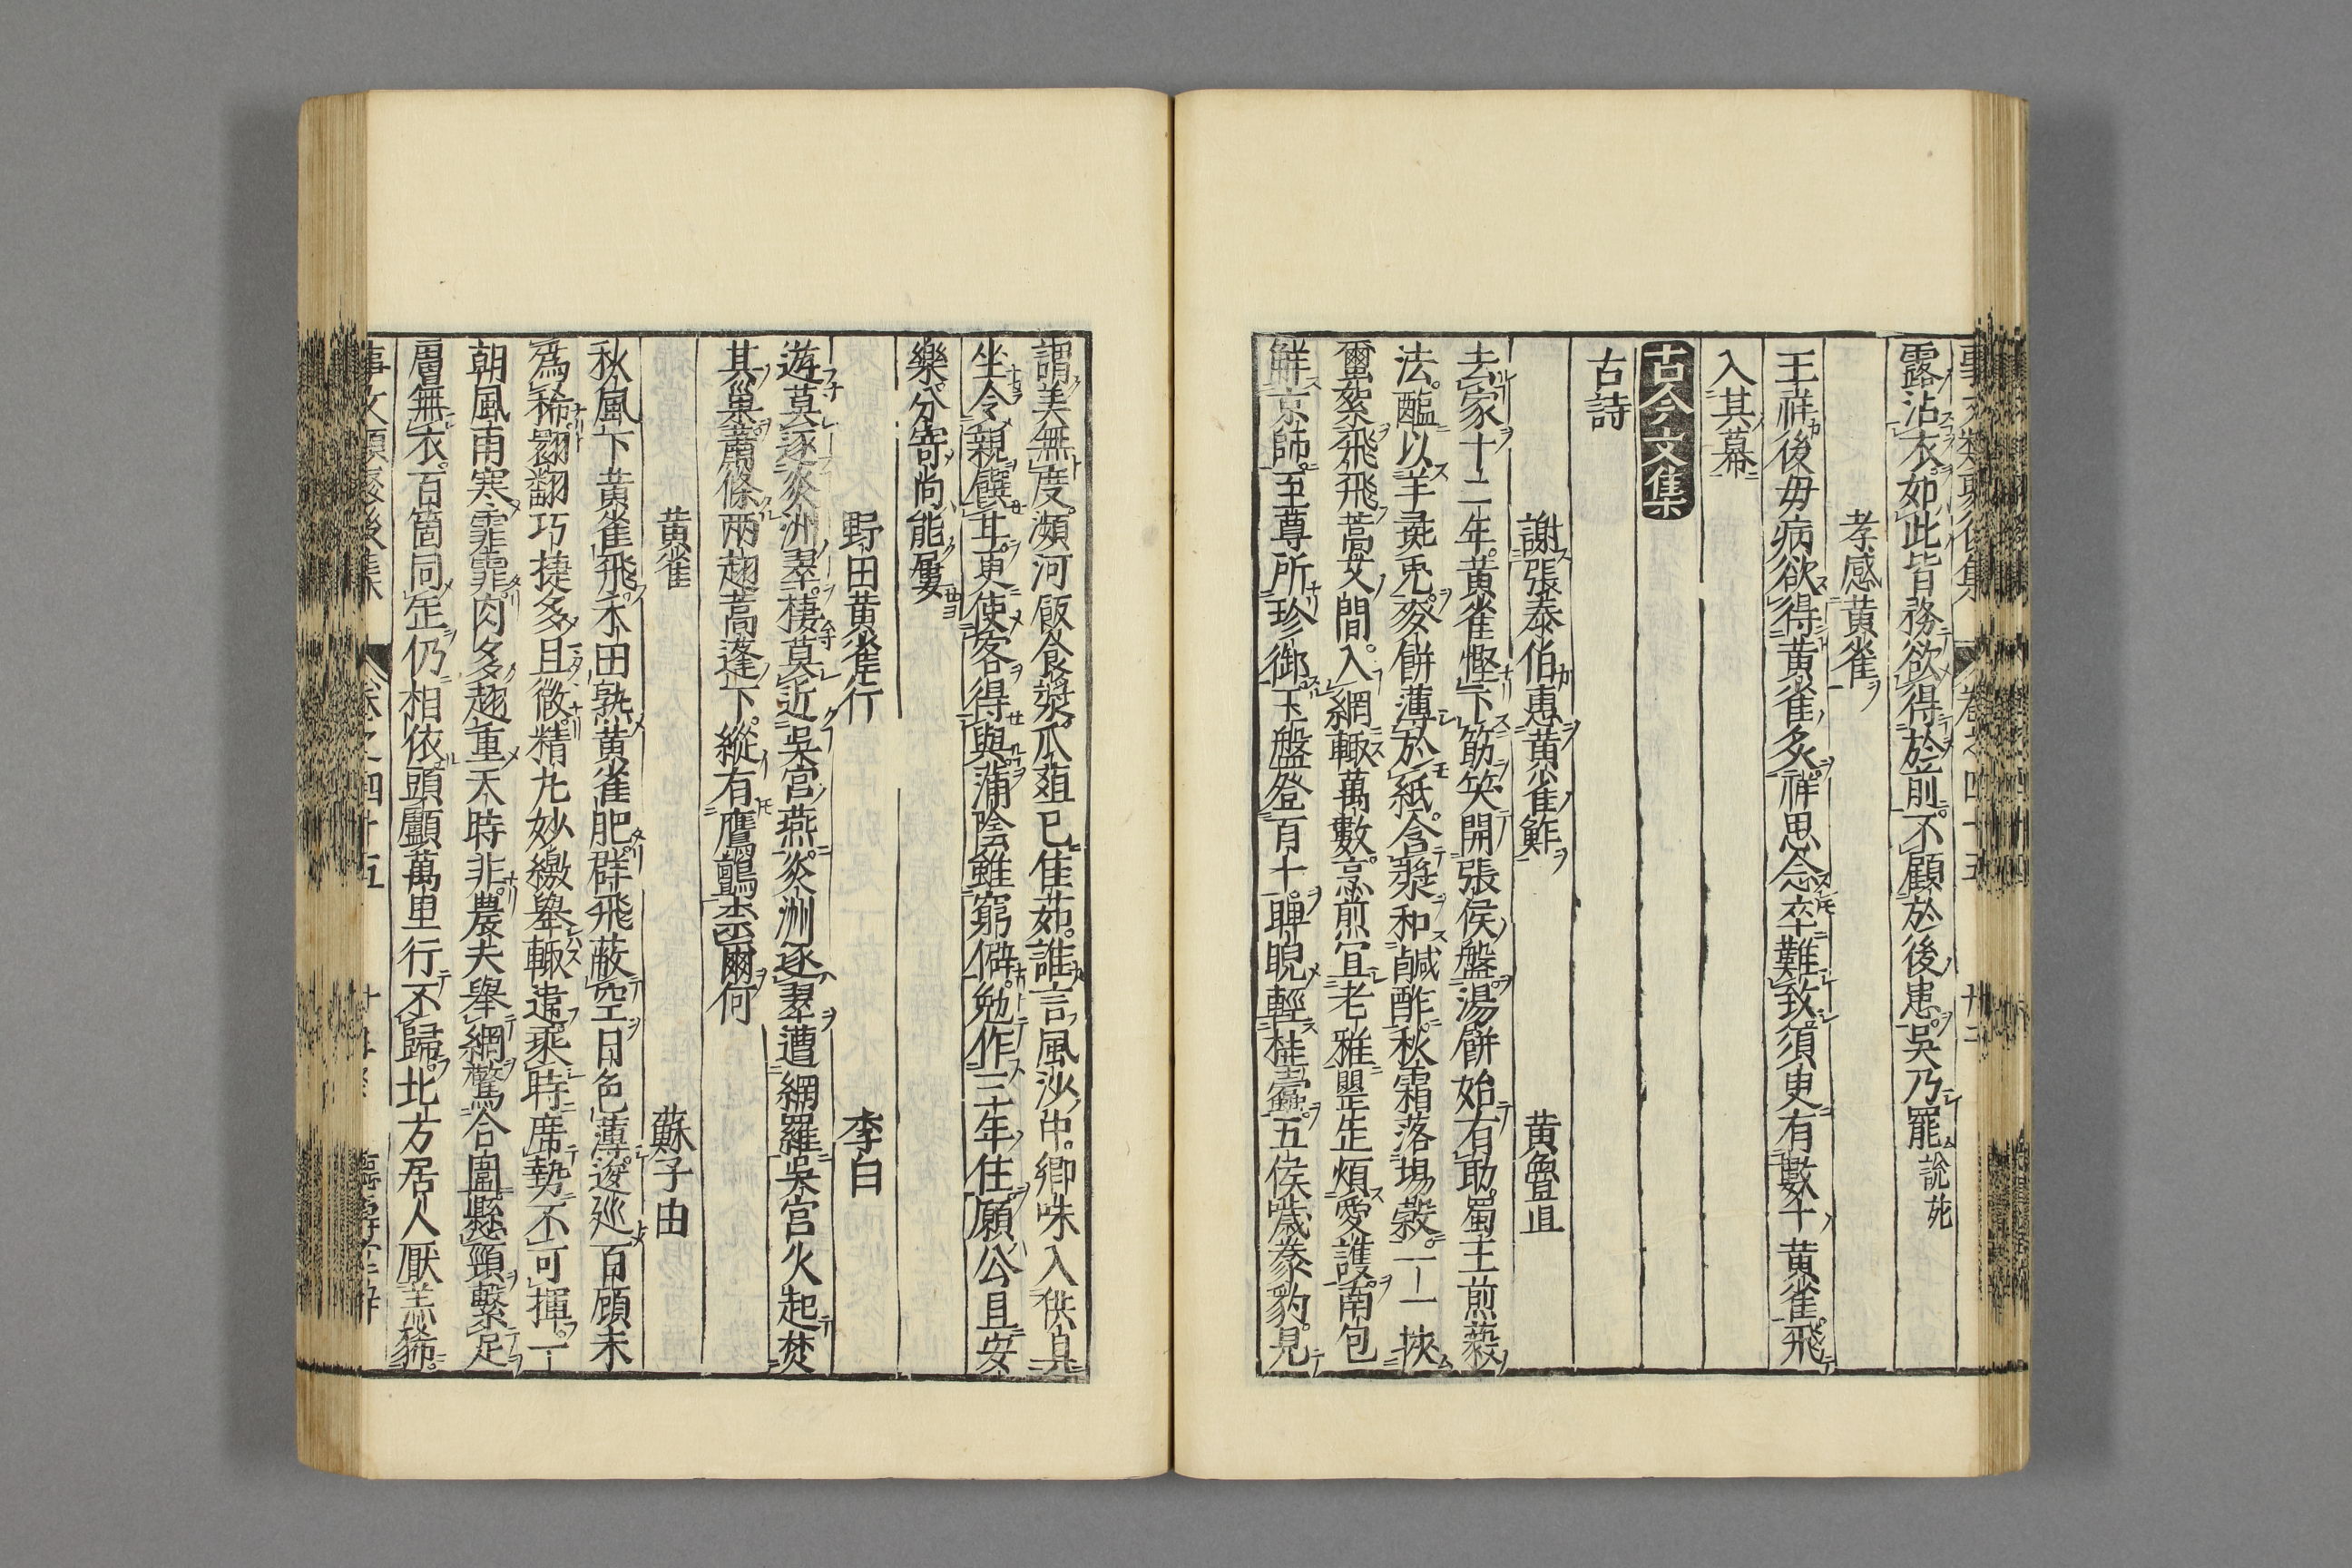 露沾衣如此皆務欲得於前不顧於後患吳乃罷說苑
孝感黃雀
王祥後母病欲得黃雀炙祥思念卒難致須臾有數十黃雀飛
入其幕
古今文集
古詩
謝張泰伯惠黃雀鮓 黃魯直
去家十二年黃雀慳下筯笑開張侯盤湯餅始有助蜀王煎藙
法醢以羊彘兎麥餅薄於紙含漿和鹹酢秋霜落場穀一一挾
蠒絮飛飛蒿艾間入網輙萬數烹煎宜老稚罌缶煩愛護南包
鮮京師至尊所珍御玉盤登百十睥睨輕桂蠹五侯噦豢豹見
謂美無度瀕河飯食漿瓜葅已佳茹誰言風沙中鄉味入供具
坐令親饌甘更使客得與蒲陰雖窮僻勉作三年住願公且安
樂分寄尚能屢
野田黃雀行 李白
遊莫逐炎洲翠棲莫近吳宮燕炎洲逐翠遭網羅吳宮火起焚
其巢蕭條兩翅蒿蓬下縱有鷹鸇柰爾何
黃雀 蘇子由
秋風下黃雀飛禾田熟黃雀肥群飛蔽空日色薄逡巡百頃禾
爲稀翾翻巧捷多且微精丸妙繳舉輙違乘時席勢不可揮一
朝風雨寒霏霏肉多翅重天時非農夫舉網驚合圍懸頸繫足
膚無衣百箇同缶仍相依頭顱萬里行不歸北方居人厭羔豨
事文類聚後集 卷之四十五